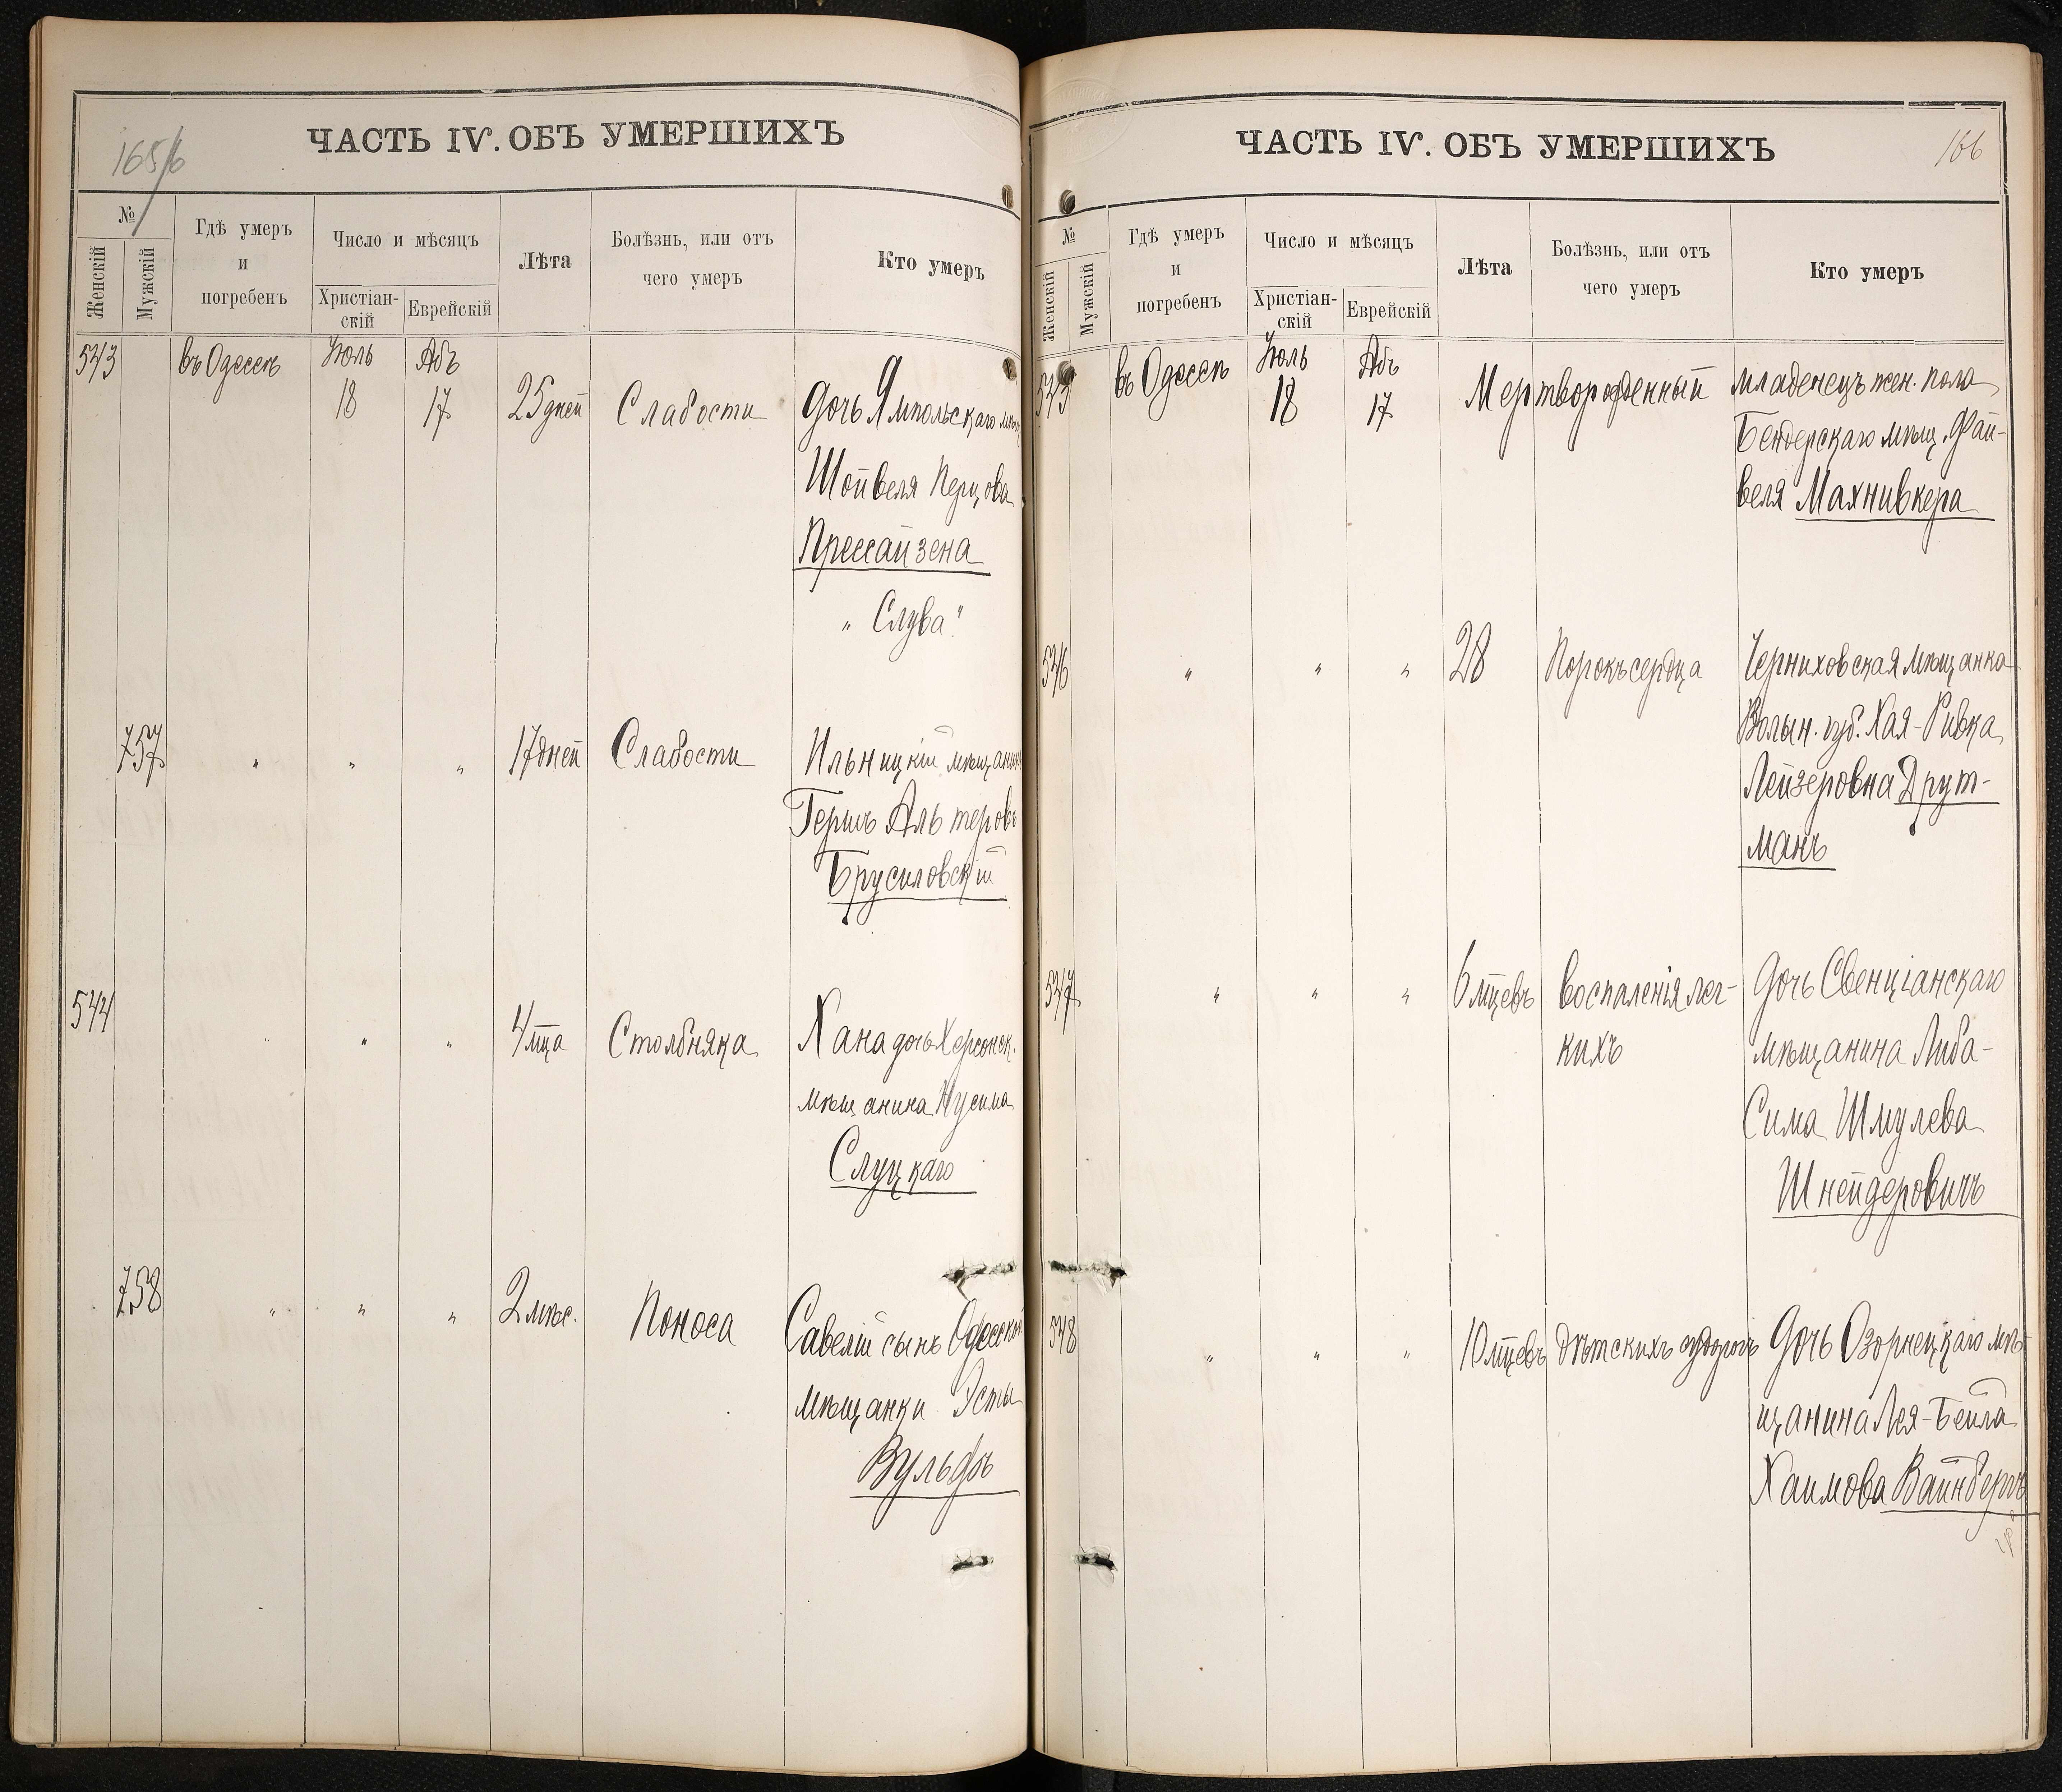 165/б
ЧАСТЬ IV. ОБЪ УМЕРШИХЪ
№
Женскій
Мужскій
Гдѣ умеръ
и
погребенъ
Число и мѣсяцъ
Христіан-
скій
Еврейскій
Лѣта
Болѣзнь, или отъ
чего умеръ
Кто умеръ
543 въ Одессѣ Іюль Абъ
18 17 25 дней Слабости дочь Ямпольскаго мѣщ
Шойвеля Перцова
Прессайзена
„ Слува."
757 „ „ „ 17 дней Слабости Ильницкій мѣщанинъ
Гершъ Альтеровъ
Брусиловскій
544 „ „ „ 4 мца Столбняка Хана дочь Херсонск.
мѣщанина Нусима
Слуцкаго
758 „ „ „ 2 мѣс. Поноса Савелій сынъ Одесской
мѣщанки Эсты
Вульфъ
ЧАСТЬ IV. ОБЪ УМЕРШИХЪ
166
№
Женскій
Мужскій
Гдѣ умеръ
и
погребенъ
Число и мѣсяцъ
Христіан-
скій
Еврейскій
Лѣта
Болѣзнь, или отъ
чего умеръ
Кто умеръ
545 въ Одессѣ Іюль Абъ
18 17 Мертворожденный младенецъ жен. пола
Бендерскаго мѣщ. Фай-
веля Махнивкера
546 „ „ „ 28 Порокъ сердца Черниховская мѣщанка
Волын. губ. Хая-Ривка
Лейзеровна Друт-
манъ
547 „ „ „ 6 мцевъ воспаленія лег-
кихъ
Дочь Свенціанскаго
мѣщанина Либа-
Сима Шмулева
Шнейдеровичъ
548 „ „ „ 10 мцевъ дѣтскихъ судорогъ Дочь Озорнецкаго мѣ-
щанина Лея-Бейла
Хаимова Вайнбергъ